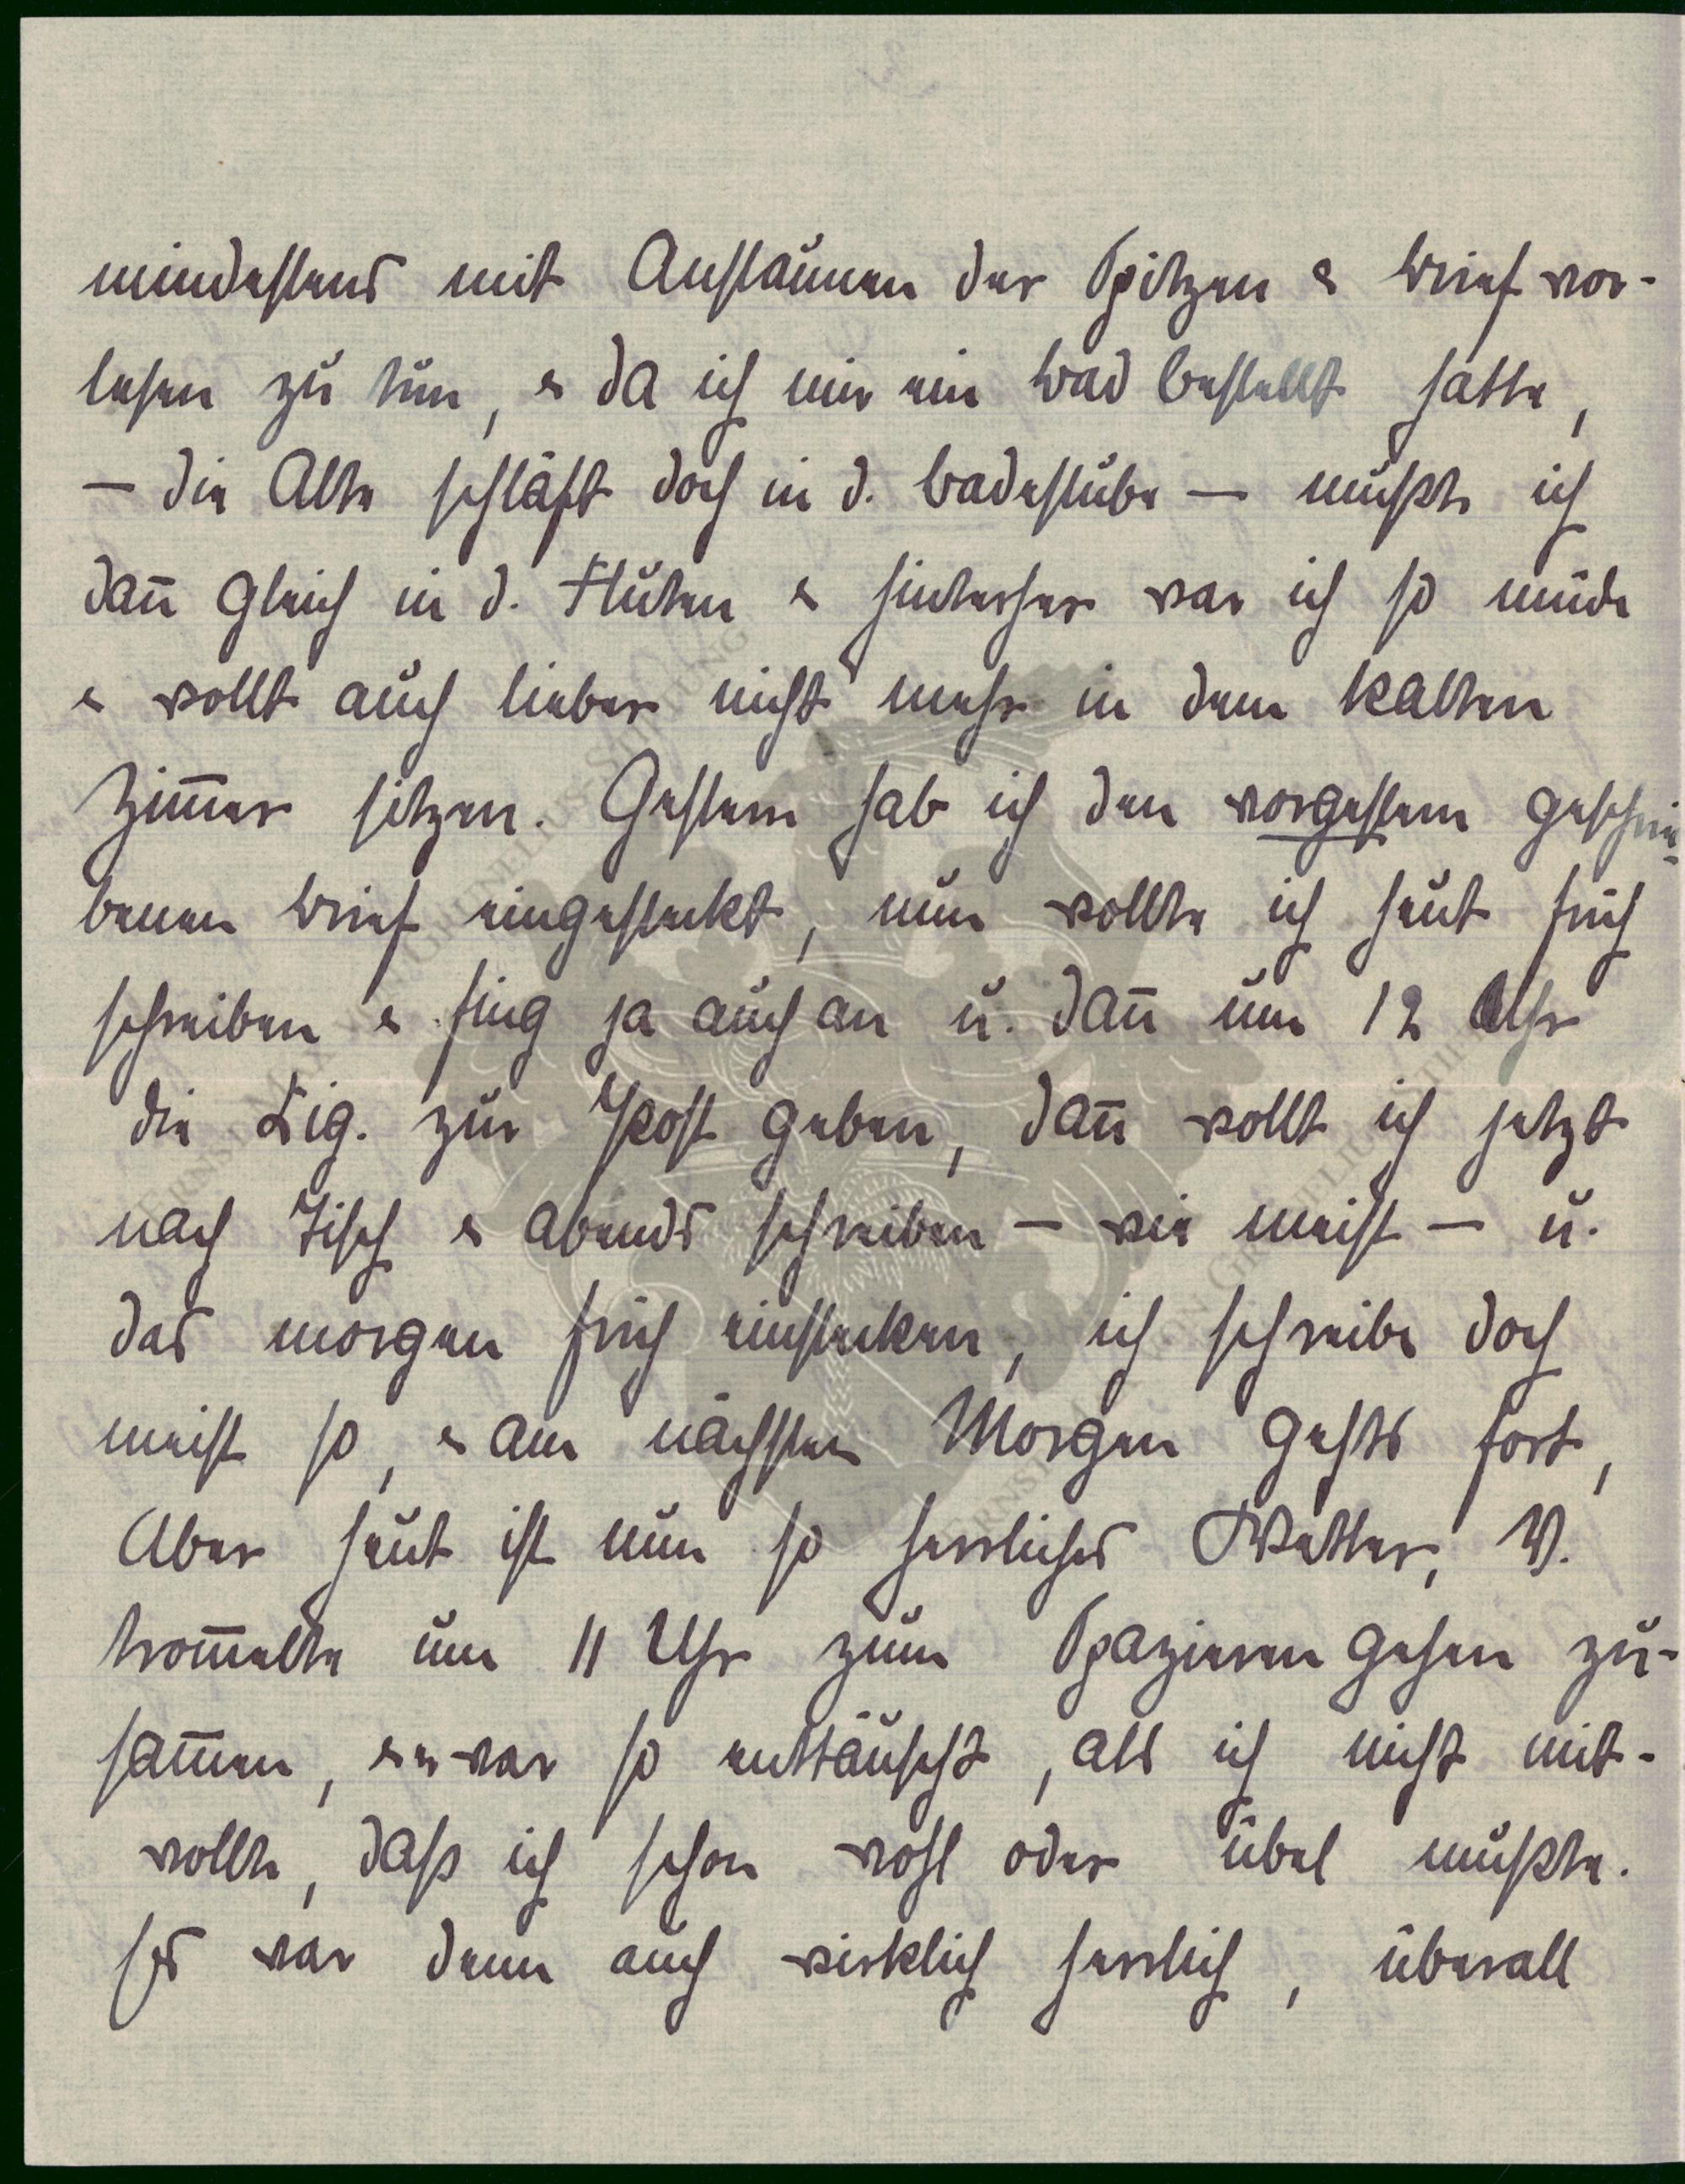 mindestens mit Anstaunen der Spitzen & Brief vor-
lesen zu tun, & da ich mir ein Bad bestellt hatte,
– die Alte schläft doch in d. Badestube – mußte ich
dan̄ gleich in d. Fluten & hinterher war ich so müde
& wollt auch lieber nicht mehr in dem kalten
Zim̄er sitzen. Gestern hab ich den vorgestern geschrie-
benen Brief eingesteckt, nun wollte ich heut früh
schreiben & fing ja auch an u. dan̄ um 12 Uhr
die Zig. zur Post geben, dan̄ wollt ich jetzt
nach Tisch & abends schreiben – wie meist – u.
das morgen früh einstecken, ich schreibe doch
meist so, & am nächsten Morgen gehts fort,
Aber heut ist nun so herrliches Wetter, W.
trom̄elte um 11 Uhr zum Spazieren gehen zu-
sam̄en, & er war so enttäuscht, als ich nicht mit-
wollte, daß ich schon wohl oder übel mußte.
Es war denn auch wirklich herrlich, überall